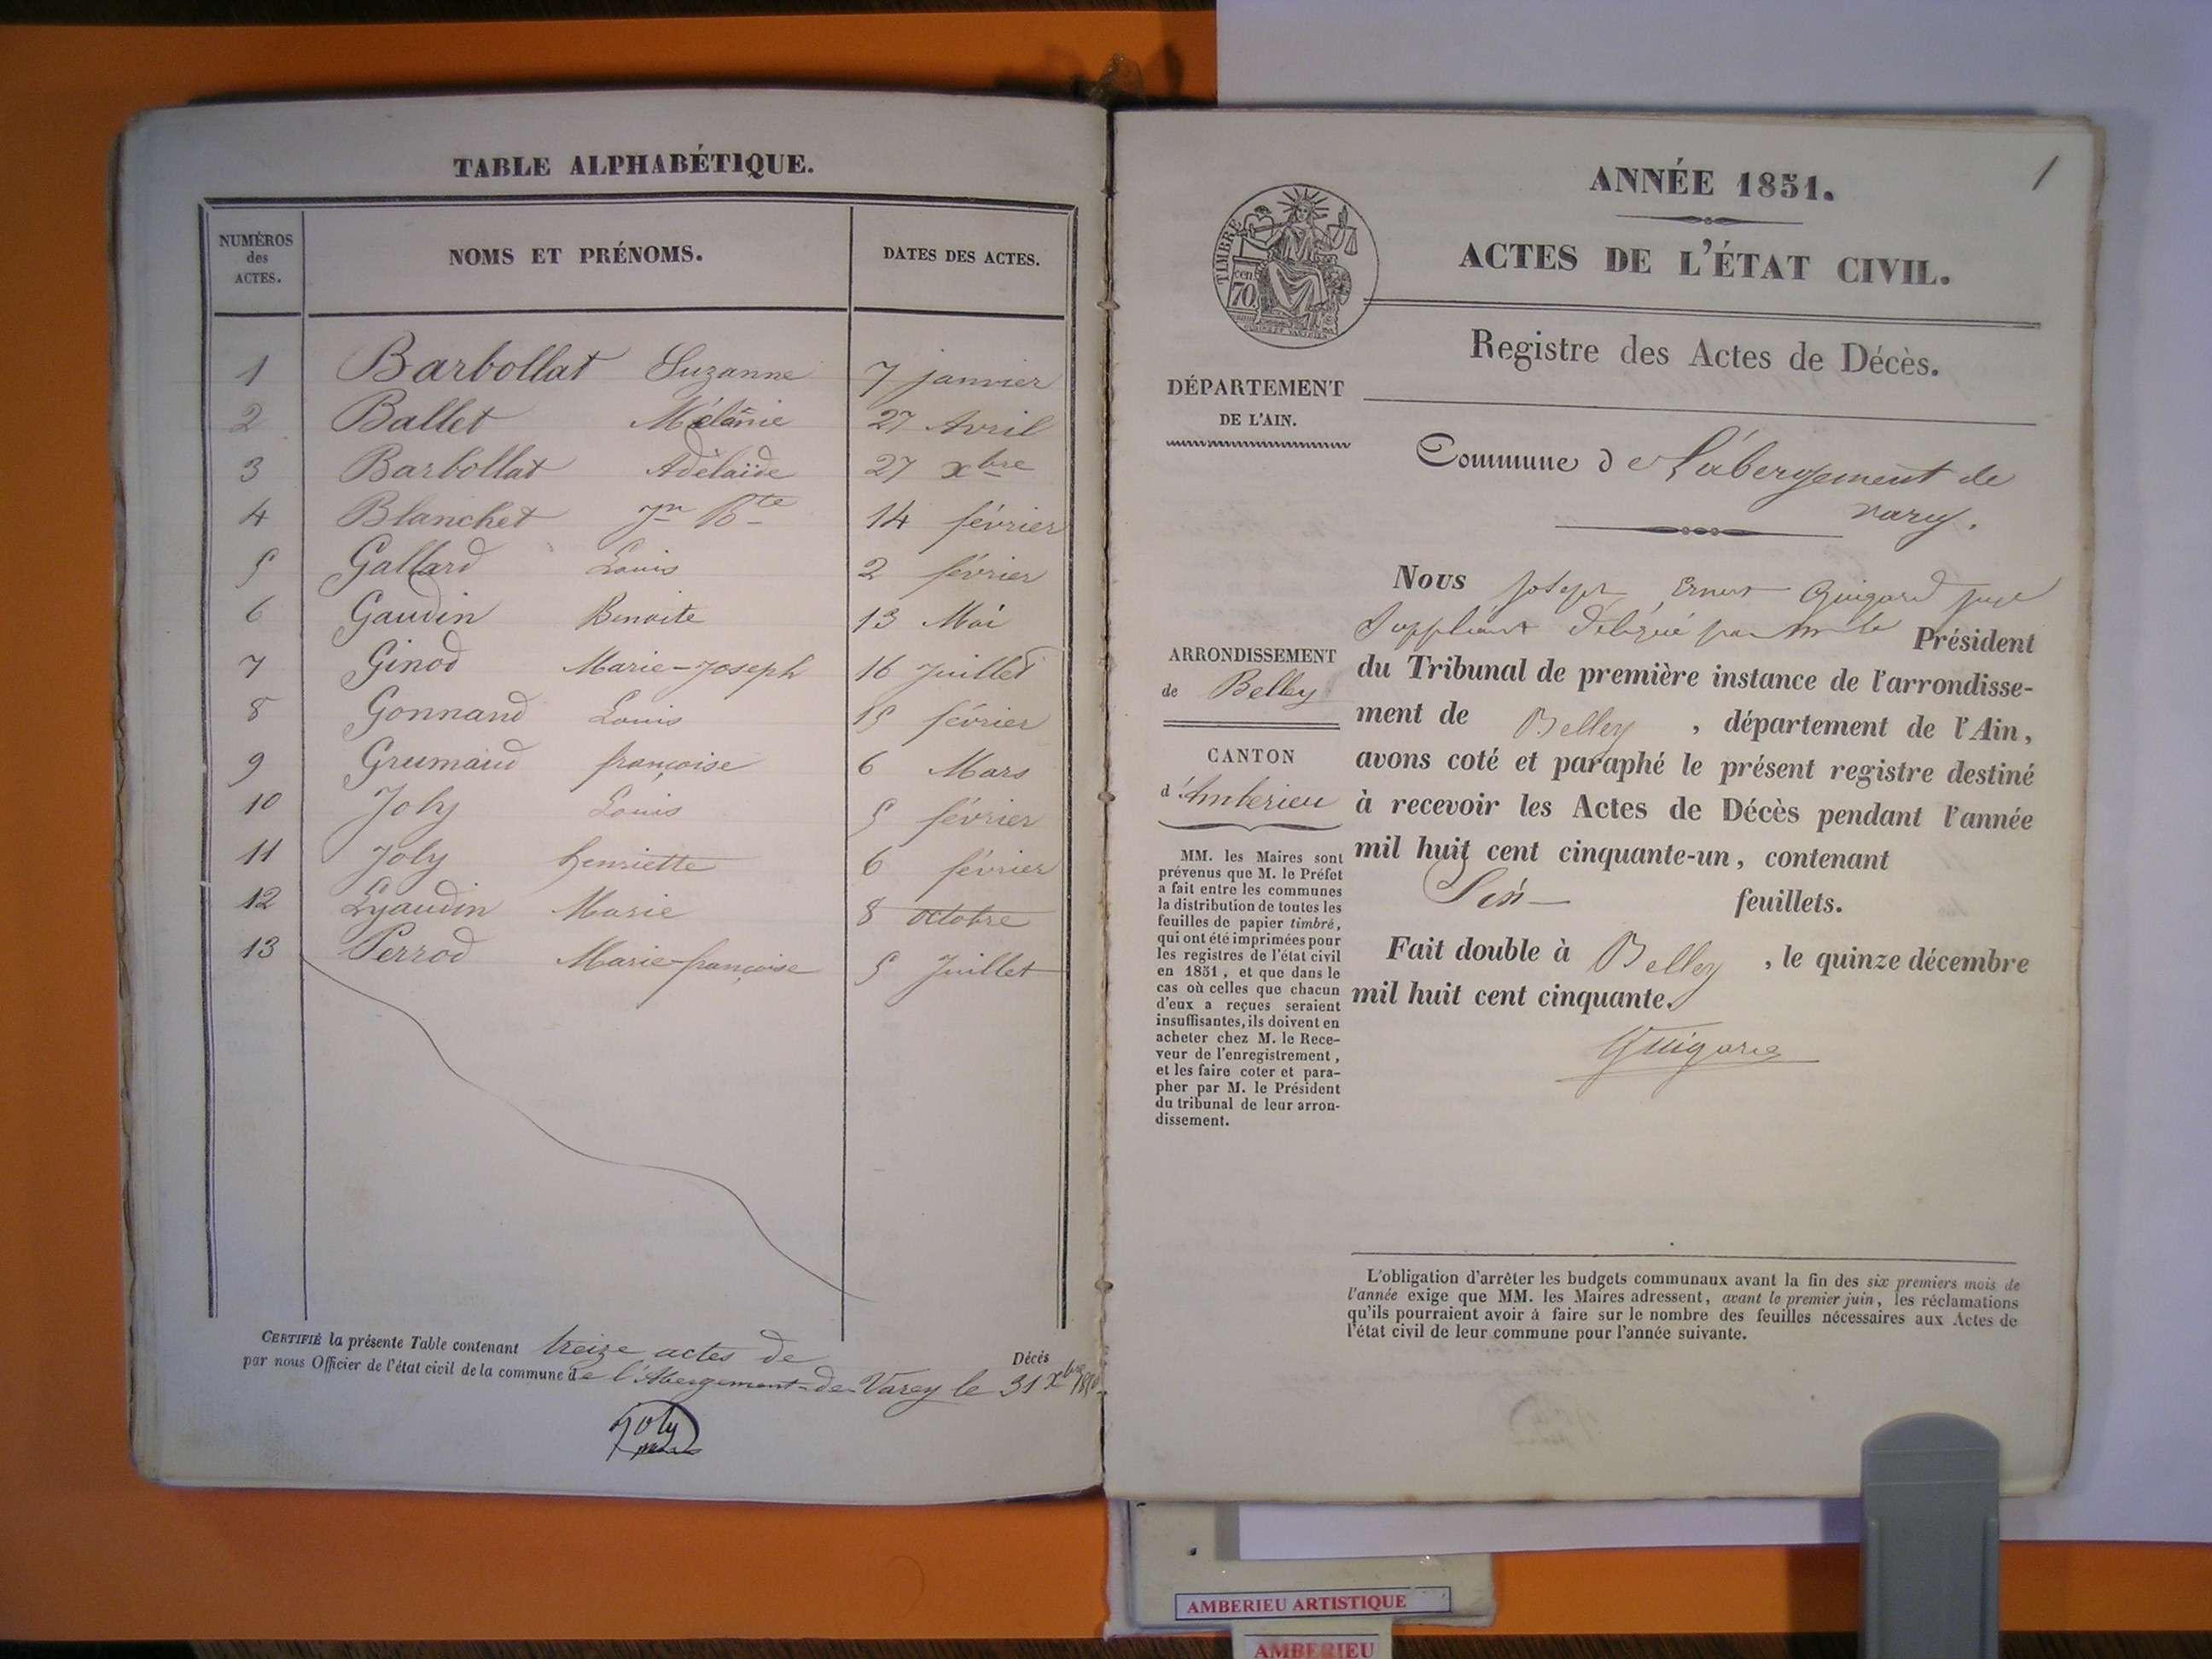 TABLE ALPHABÉTIQUE.
NUMÉROS des ACTES. NOMS ET PRÉNOMS. DATES DES ACTES.
1 Barbollat Suzanne 7 janvier
2 Ballet Mélanie 27 Avril
3 Barbollat Adélaïde 27 xbre
4 Blanchet Jn Bte 14 février
5 Gallard Louis 2 février
6 Gaudin Benoite 13 Mai
7 Ginod Marie-Joseph 16 Juillet
8 Gonnand Louis 15 février
9 Grumaud françoise 6 Mars
10 Joly Louis 5 février
11 Joly henriette 6 février
12 Lyaudin Marie 8 octobre
13 Perrod Marie-françoise 5 Juillet
CERTIFIÉ la présente Table contenant treize actes de Décès
par nous Officier de l'état civil de la commune de l'Abergement-de-Varey le 31 xbre 1850
Joly
1
ANNÉE 1851.
ACTES DE L'ÉTAT CIVIL.
TIMBRE
70 cen
Registre des Actes de Décès.
DÉPARTEMENT
DE L'AIN.
Commune de L'abergement de
varey.
Nous Joseph Ernest Guigard juge
Suppléant Délégué par Mr le Président
du Tribunal de première instance de l'arrondisse-
ment de Belley, département de l'Ain,
avons coté et paraphé le présent registre destiné
à recevoir les Actes de Décès pendant l'année
mil huit cent cinquante-un, contenant
Six feuillets.
Fait double à Belley, le quinze décembre
mil huit cent cinquante.
Guigard
ARRONDISSEMENT
de Belley
CANTON
d'Amberieu
MM. les Maires sont
prévenus que M. le Préfet
a fait entre les communes
la distribution de toutes les
feuilles de papier timbré,
qui ont été imprimées pour
les registres de l'état civil
en 1851, et que dans le
cas où celles que chacun
d'eux a reçues seraient
insuffisantes, ils doivent en
acheter chez M. le Rece-
veur de l'enregistrement,
et les faire coter et para-
pher par M. le Président
du tribunal de leur arron-
dissement.
L'obligation d'arrêter les budgets communaux avant la fin des six premiers mois de
l'année exige que MM. les Maires adressent, avant le premier juin, les réclamations
qu'ils pourraient avoir à faire sur le nombre des feuilles nécessaires aux Actes de
l'état civil de leur commune pour l'année suivante.
AMBERIEU ARTISTIQUE
AMBERIEU